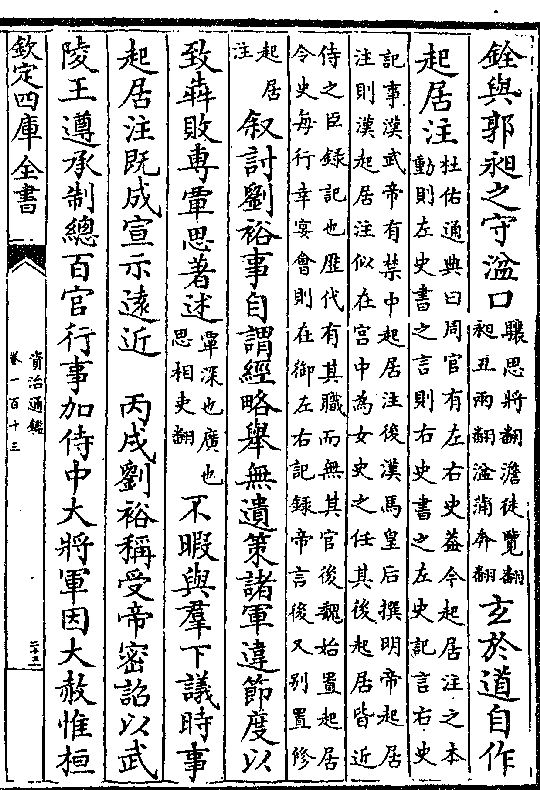 銓與郭昶之守湓口
驤思將翻澹徒覽翻
昶丑兩翻湓蒲奔翻
玄於道自作
起居注
杜佑通典曰周官有左右史蓋今起居注之本
動則左史書之言則右史書之左史記言右史
記事漢武帝有禁中起居注後漢馬皇后撰明帝起居
注則漢起居注似在宮中為女史之任其後起居皆近
侍之臣錄記也歷代有其職而無其官後魏始置起居
令史每行幸宴會則在御左右記録帝言後又別置修
起居
注
叙討劉裕事自謂經略舉無遺策諸軍違節度以
致犇敗專覃思著述
覃深也廣也
思相吏翻
不暇與羣下議時事
起居注既成宣示遠近 丙戌劉裕稱受帝密詔以武
陵王遵承制總百官行事加侍中大將軍因大赦惟桓
欽定四庫全書
資治通鑑
卷一百十三